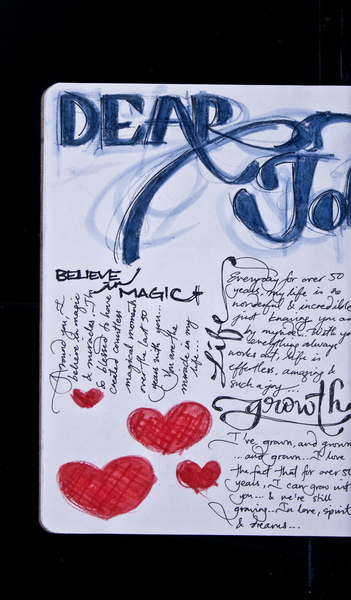 DEAR
Jo
BELIEVE
in
MAGIC
Around you, I
believe in magic
& miracles. I'm
so blessed to have
created countless
magical moments
over the last 50
years with you...
You are the
miracle in my
life...
Life
Everyday for over 50
years, my life is so
wonderful & incredible
just knowing you are
by my side. With yo
everything always
works out. Life is
effortless, amazing &
such a joy...
growth
I've grown, and grown
...and grown... I love
the fact that for over 50
years, I can grow wit
you... & we're still
growing... In love, spirit
& dreams...